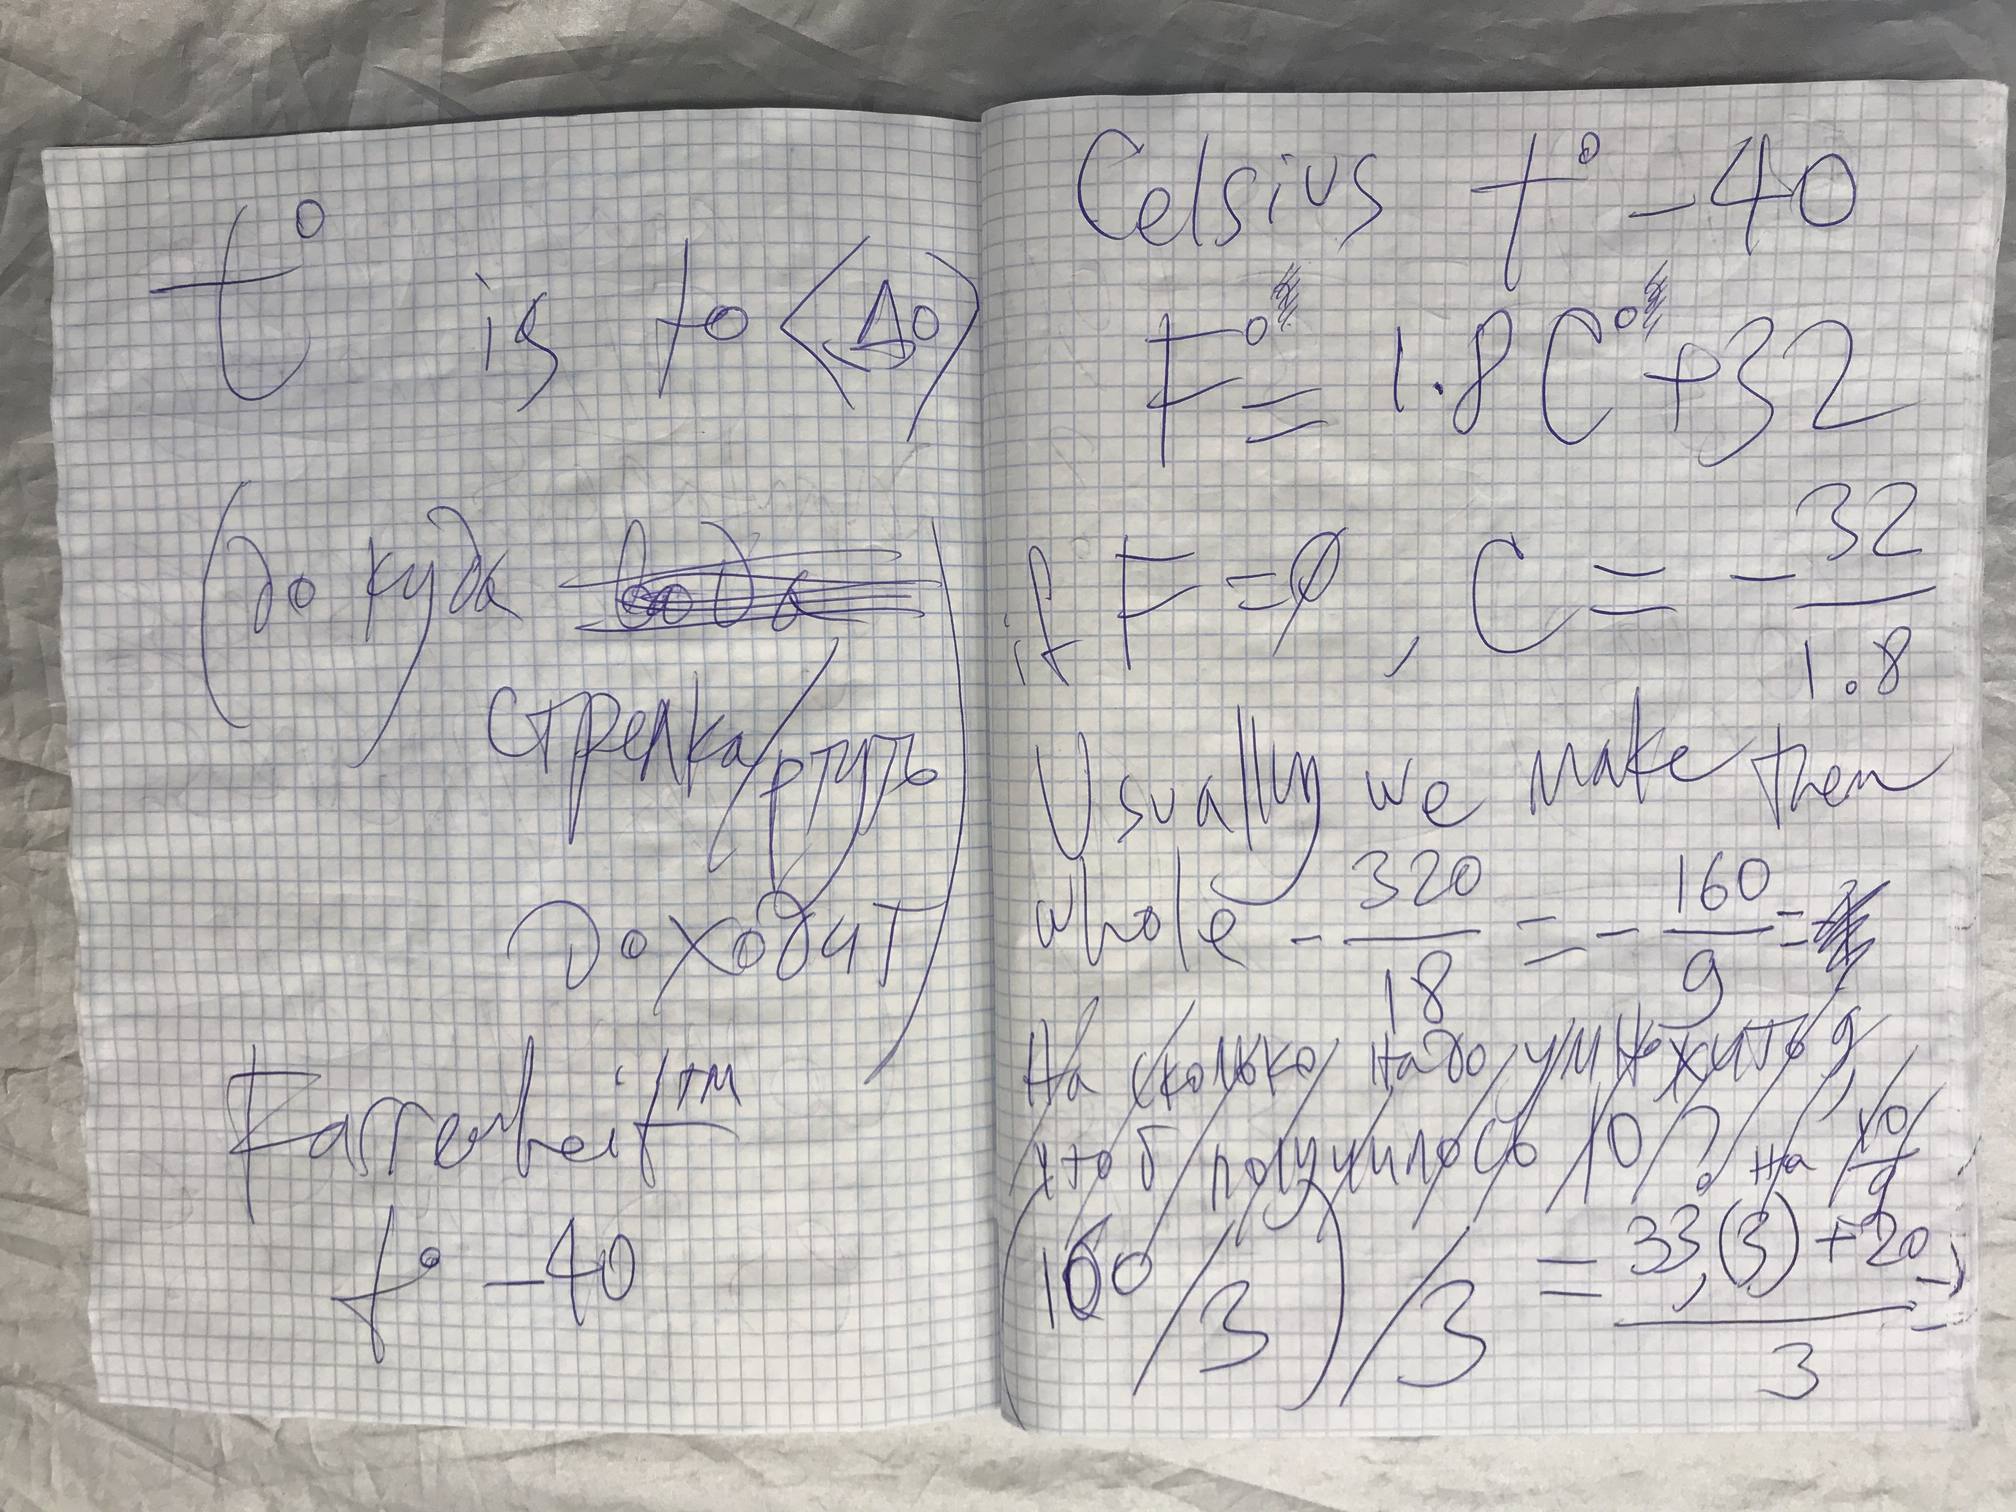 t° is to <До>
(до куда вода
стрелка/ртуть
доходит)
Farrenheit™
t° -40
Celsius t° -40
F° = 1.8 C° + 32
if F = ∅, C = - 32/1.8
Usually we make then
whole - 320/18 = - 160/9 =
На сколько надо умножить 9,
чтоб получилось 10? На 10/9
(160/3)/3 = (33,(3) + 20)/3 =